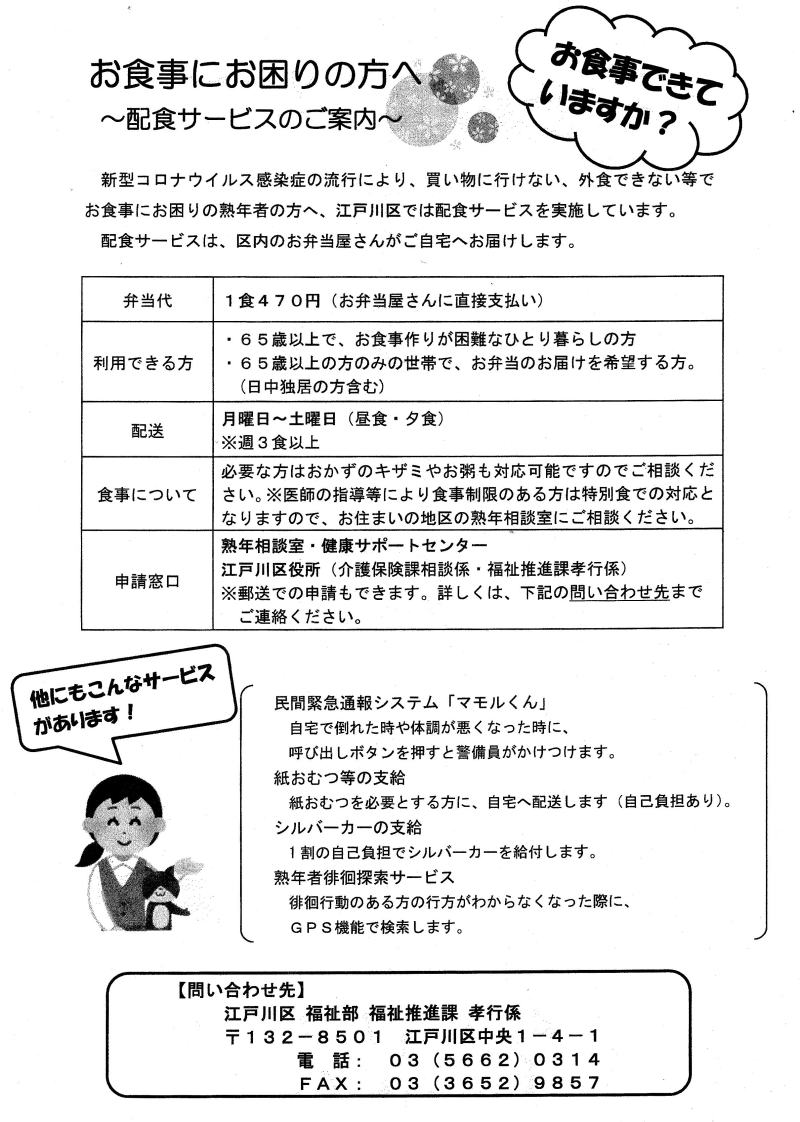 お食事にお困りの方へ
～配食サービスのご案内～
お食事できて
いますか？
新型コロナウイルス感染症の流行により、買い物に行けない、外食できない等で
お食事にお困りの熟年者の方へ、江戸川区では配食サービスを実施しています。
配食サービスは、区内のお弁当屋さんがご自宅へお届けします。
弁当代
１食４７０円（お弁当屋さんに直接支払い）
利用できる方
・６５歳以上で、お食事作りが困難なひとり暮らしの方
・６５歳以上の方のみの世帯で、お弁当のお届けを希望する方。
（日中独居の方含む）
配送
月曜日～土曜日（昼食・夕食）
※週３食以上
食事について
必要な方はおかずのキザミやお粥も対応可能ですのでご相談くだ
さい。※医師の指導等により食事制限のある方は特別食での対応と
なりますので、お住まいの地区の熟年相談室にご相談ください。
申請窓口
熟年相談室・健康サポートセンター
江戸川区役所（介護保険課相談係・福祉推進課孝行係）
※郵送での申請もできます。詳しくは、下記の問い合わせ先まで
ご連絡ください。
他にもこんなサービス
があります！
民間緊急通報システム「マモルくん」
自宅で倒れた時や体調が悪くなった時に、
呼び出しボタンを押すと警備員がかけつけます。
紙おむつ等の支給
紙おむつを必要とする方に、自宅へ配送します（自己負担あり）。
シルバーカーの支給
１割の自己負担でシルバーカーを給付します。
熟年者徘徊探索サービス
徘徊行動のある方の行方がわからなくなった際に、
ＧＰＳ機能で検索します。
【問い合わせ先】
江戸川区 福祉部 福祉推進課 孝行係
〒１３２－８５０１　江戸川区中央１－４－１
電　話：　０３（５６６２）０３１４
ＦＡＸ：　０３（３６５２）９８５７